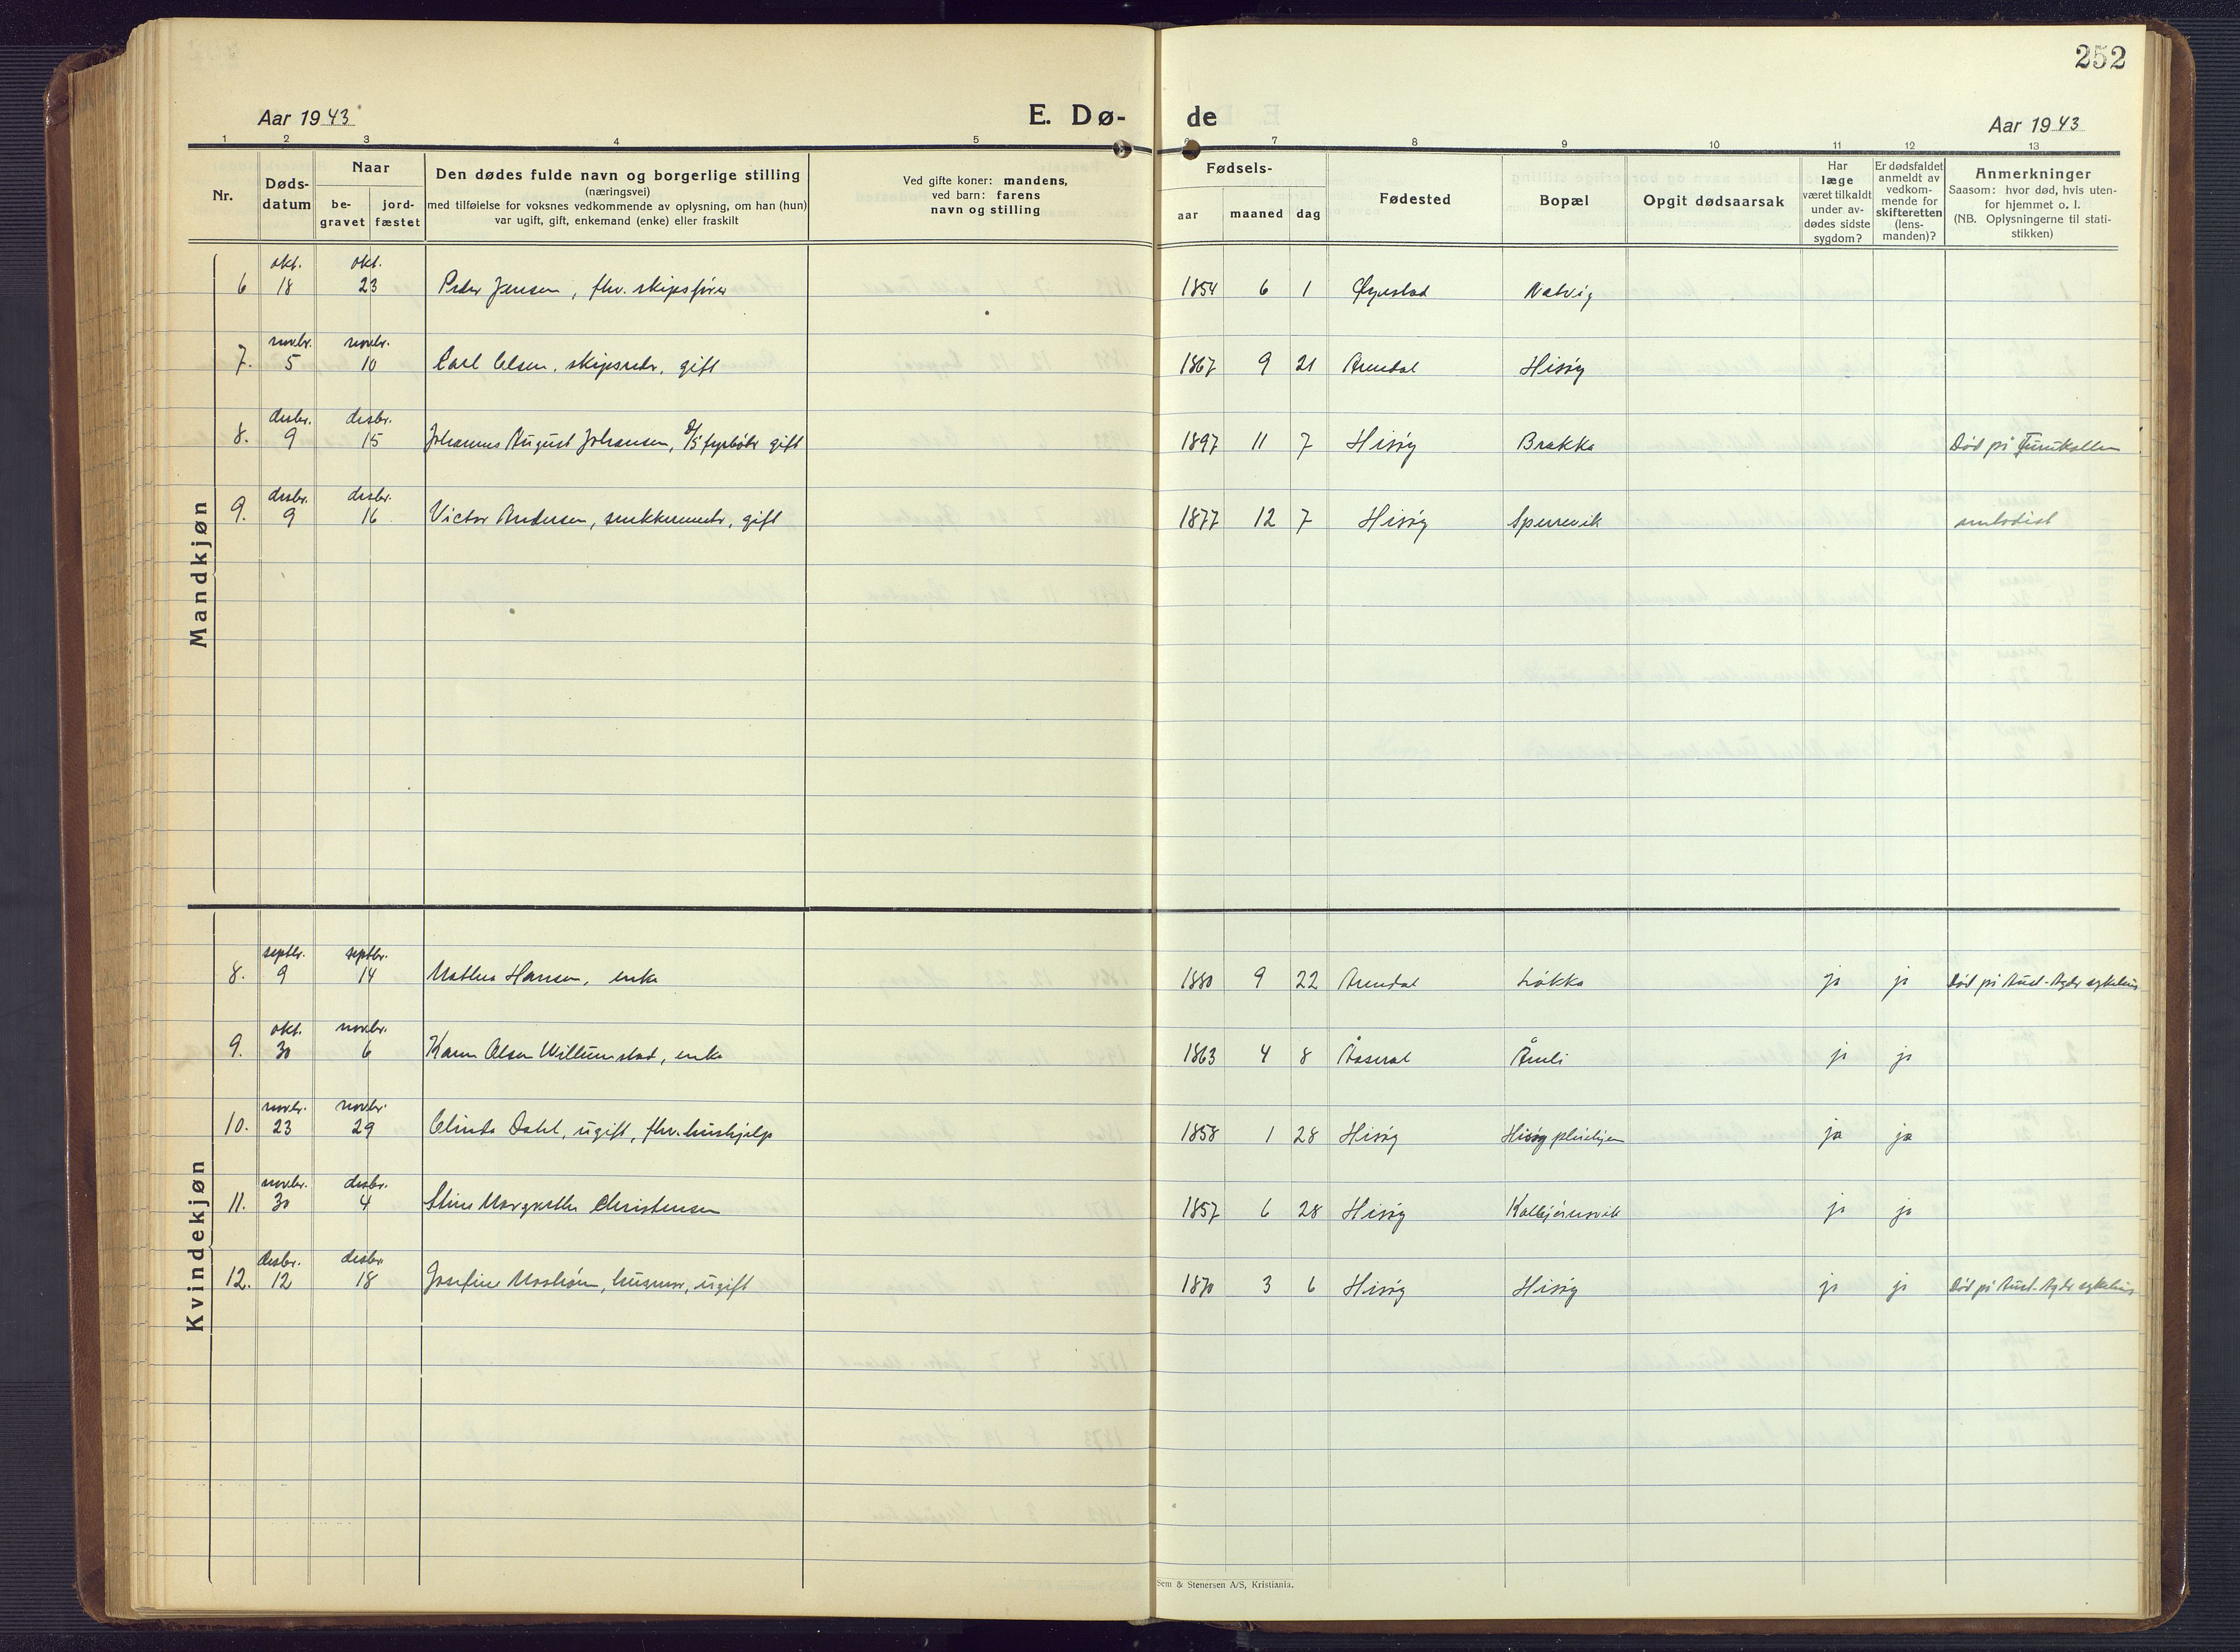 252
Aar 1943
E. Dø-
de
Aar 1943
1 2 3 4 5 6 7 8 9 10 11 12 13
Nr.
Døds-
datum
Naar
be-
gravet
jord-
fæstet
Den dødes fulde navn og borgerlige stilling
(næringsvei)
med tilføielse for voksnes vedkommende av oplysning, om han (hun)
var ugift, gift, enkemand (enke) eller fraskilt
Ved gifte koner: mandens,
ved barn: farens
navn og stilling
Fødsels-
aar maaned dag
Fødested
Bopæl
Opgit dødsaarsak
Har
læge
været tilkaldt
under av-
dødes sidste
sygdom?
Er dødsfaldet
anmeldt av
vedkom-
mende for
skifteretten
(lens-
manden)?
Anmerkninger
Saasom: hvor død, hvis uten-
for hjemmet o. l.
(NB. Oplysningerne til stati-
stikken)
Mandkjøn
okt. okt.
6 18 23 Peder Jensen, fhv. skipsfører 1854 6 1 Øyestad Natvig
novbr. novbr.
7. 5 10 Carl Olsen, skipsreder, gift 1867 9 21 Arendal Hisøy
desbr. desbr.
8. 9 15 Johannes August Johansen, fyrbøter gift 1897 11 7 Hisøy Brekka Død på
desbr. desbr.
9. 9 16 Victor Andersen, snekkermester, gift 1877 12 7 Hisøy Sperrevik metodist
Kvindekjøn
septbr. septbr.
8. 9 14 Mathea Hansen, enke 1880 9 22 Arendal Løkka ja ja Død på Aust-Agder sykehus
okt. novbr.
9. 30 6 Karen Olsen Willumstad, enke 1863 4 8 Åseral Åmli ja ja
novbr. novbr.
10. 23 29 Olinda Dahl, ugift, fhv. hushjelp 1858 1 28 Hisøy Hisøy pleiehjem ja ja
novbr. desbr.
11. 30 4 Stine Margrethe Christensen 1857 6 28 Hisøy Kolbjørnsvik ja ja
desbr. desbr.
12. 12 18 Josefine husmor, ugift 1870 3 6 Hisøy Hisøy ja ja Død på Aust-Agder sykehus
Sem & Stenersen A/S, Kristiania.